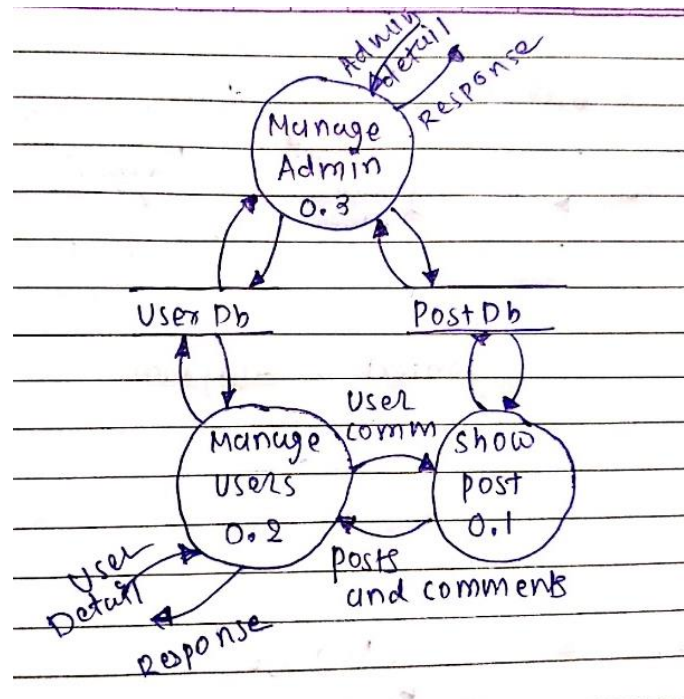 Admin
detail
Response
Manage
Admin
0.3
User Db
Post Db
User
comm
Manage
users
0.2
show
post
0.1
posts
and comments
User
Detail
Response